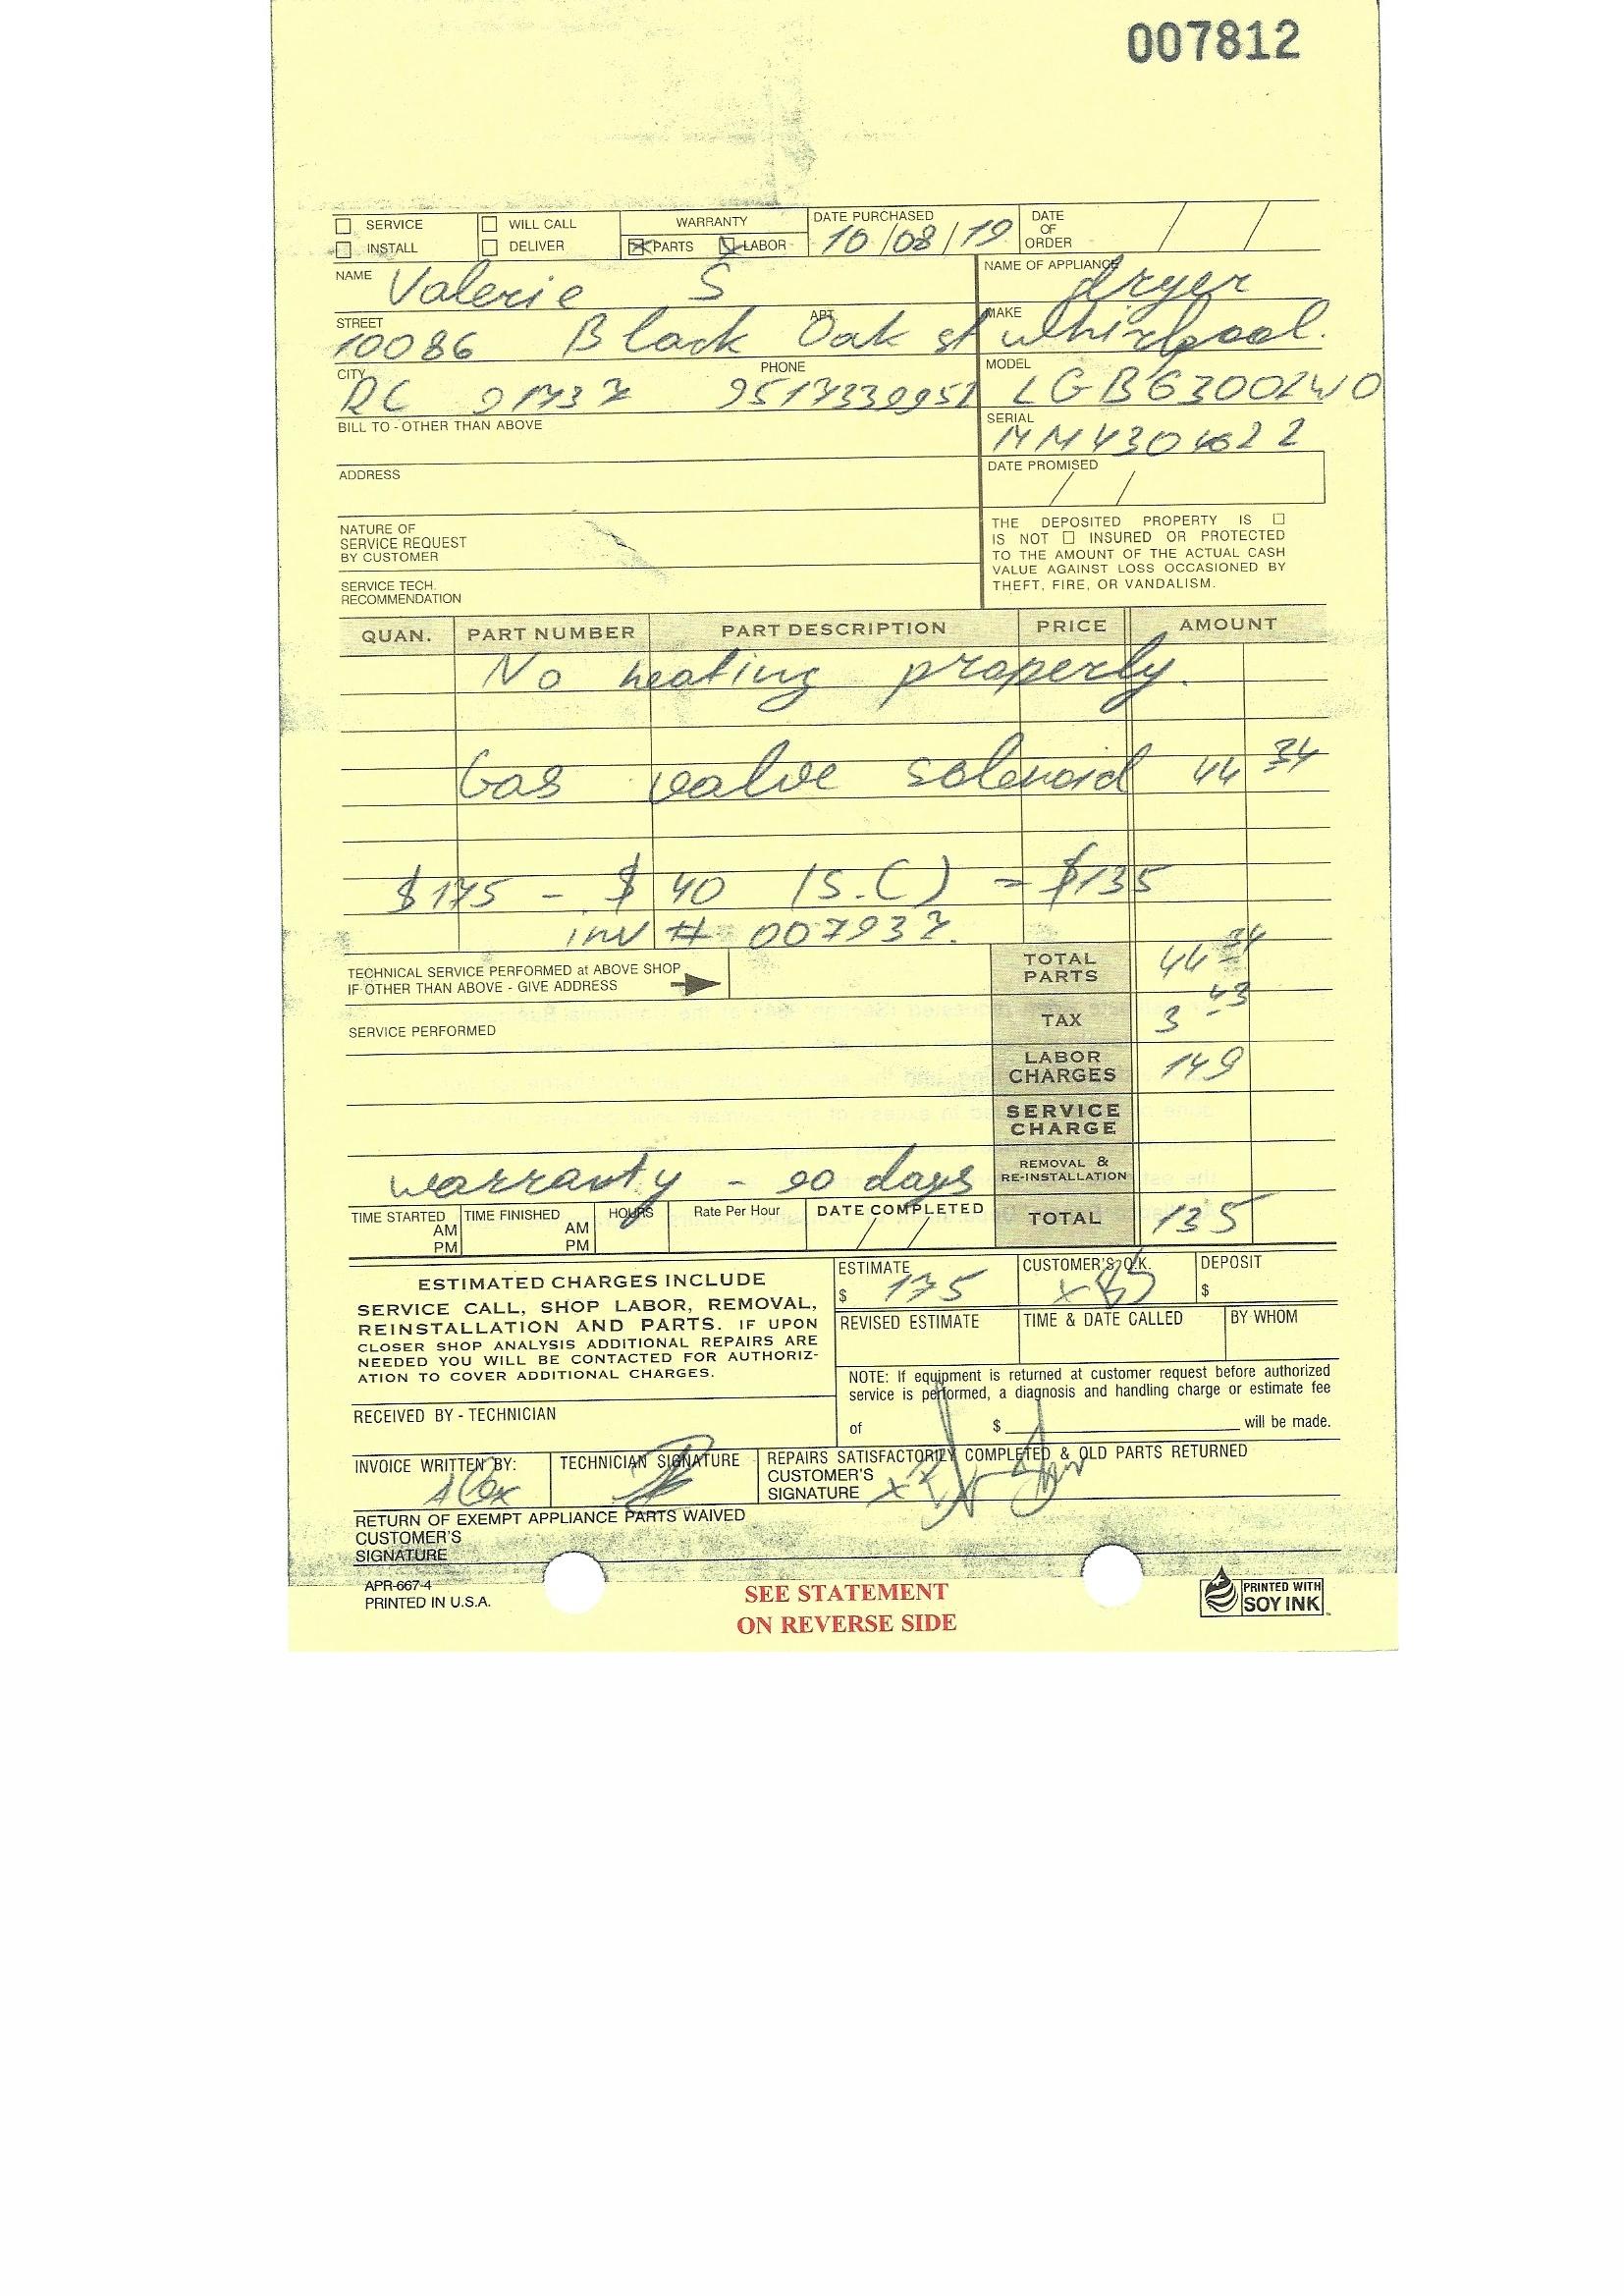 007812
SERVICE WILL CALL WARRANTY DATE PURCHASED 10/08/19 DATE OF ORDER / /
INSTALL DELIVER PARTS LABOR
NAME Valerie S NAME OF APPLIANCE dryer
STREET 10086 Black Oak st APT. MAKE whirlpool.
CITY RC 91737 PHONE 9517339951 MODEL LGB6300LW0
BILL TO - OTHER THAN ABOVE SERIAL
ADDRESS DATE PROMISED / /
NATURE OF
SERVICE REQUEST
BY CUSTOMER
SERVICE TECH.
RECOMMENDATION
THE DEPOSITED PROPERTY IS
IS NOT INSURED OR PROTECTED
TO THE AMOUNT OF THE ACTUAL CASH
VALUE AGAINST LOSS OCCASIONED BY
THEFT, FIRE, OR VANDALISM.
QUAN. PART NUMBER PART DESCRIPTION PRICE AMOUNT
No heating properly.
Gas valve solenoid 44 34
$175 - $40 (S.C) = $135
inv # 007937.
TECHNICAL SERVICE PERFORMED at ABOVE SHOP
IF OTHER THAN ABOVE - GIVE ADDRESS
TOTAL PARTS 44 34
TAX 3 43
SERVICE PERFORMED
LABOR CHARGES 149
SERVICE CHARGE
warranty - 90 days
REMOVAL & RE-INSTALLATION
TIME STARTED AM PM TIME FINISHED AM PM HOURS Rate Per Hour DATE COMPLETED / / TOTAL 135
ESTIMATED CHARGES INCLUDE
SERVICE CALL, SHOP LABOR, REMOVAL,
REINSTALLATION AND PARTS. IF UPON
CLOSER SHOP ANALYSIS ADDITIONAL REPAIRS ARE
NEEDED YOU WILL BE CONTACTED FOR AUTHORIZ-
ATION TO COVER ADDITIONAL CHARGES.
ESTIMATE $ 175 CUSTOMER'S O.K. x DEPOSIT $
REVISED ESTIMATE TIME & DATE CALLED BY WHOM
NOTE: If equipment is returned at customer request before authorized
service is performed, a diagnosis and handling charge or estimate fee
of $ will be made.
RECEIVED BY - TECHNICIAN
INVOICE WRITTEN BY: Alex TECHNICIAN SIGNATURE
REPAIRS SATISFACTORILY COMPLETED & OLD PARTS RETURNED
CUSTOMER'S
SIGNATURE x
RETURN OF EXEMPT APPLIANCE PARTS WAIVED
CUSTOMER'S
SIGNATURE
APR-667-4
PRINTED IN U.S.A.
SEE STATEMENT
ON REVERSE SIDE
PRINTED WITH
SOY INK